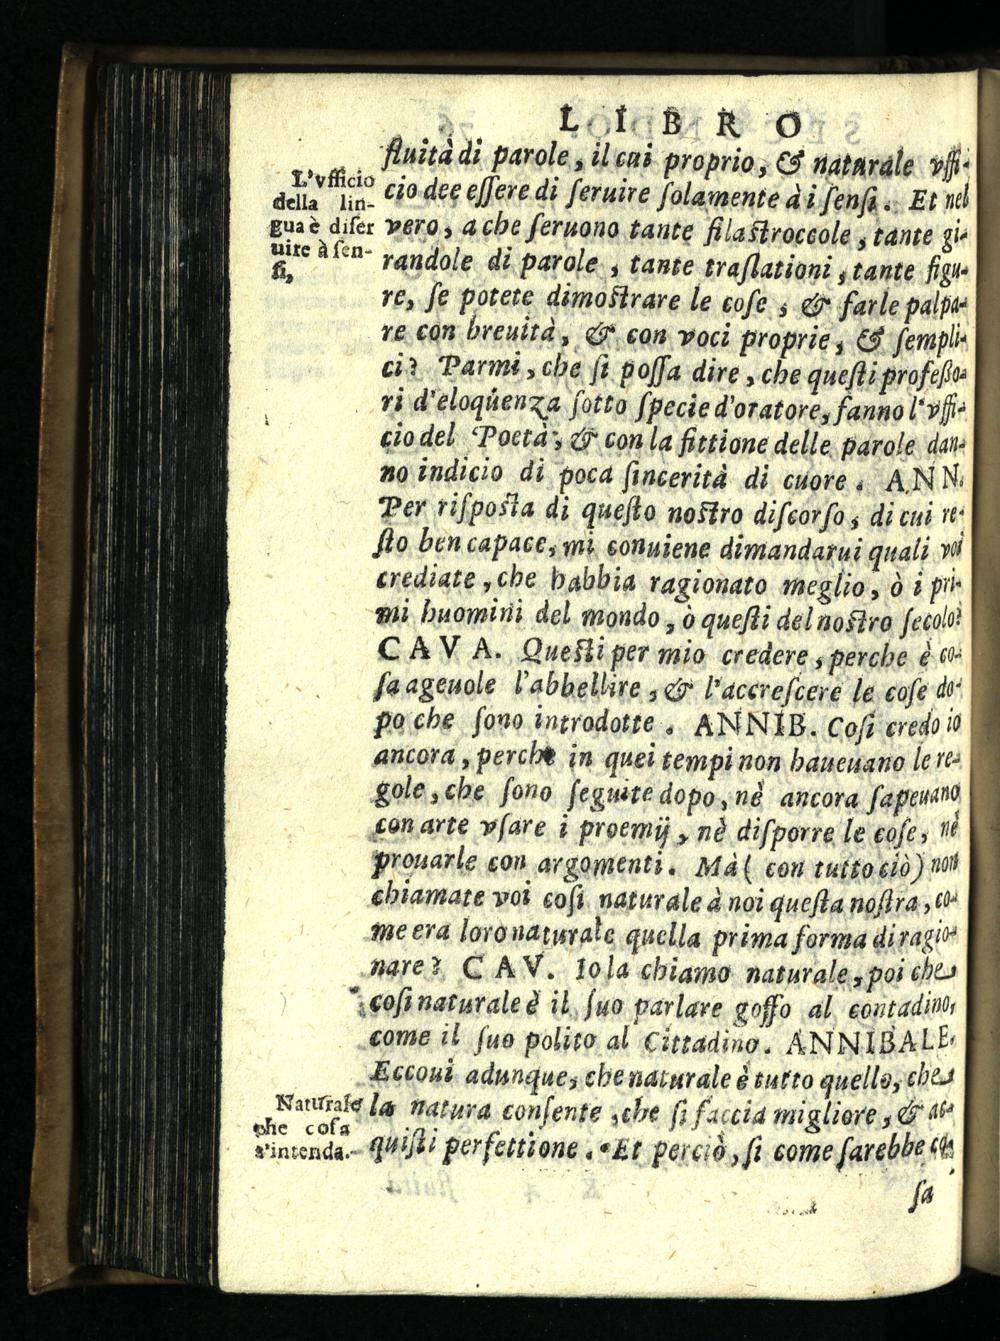 LIBRO
fluità di parole, il cui proprio, & naturale vffi-
L'vfficio
della lin-
gua è diser
uire à sen-
si,
cio dee essere di seruire solamente à i sensi. Et nel
vero, a che seruono tante filastroccole, tante gi-
randole di parole, tante traslationi, tante figu-
re, se potete dimostrare le cose, & farle palpa-
re con breuità, & con voci proprie, & sempli-
ci? Parmi, che si possa dire, che questi professo-
ri d'eloquenza sotto specie d'oratore, fanno l'vffi-
cio del Poeta, & con la fittione delle parole dan-
no indicio di poca sincerità di cuore. ANN.
Per risposta di questo nostro discorso, di cui re-
sto ben capace, mi conuiene dimandarui quali voi
crediate, che habbia ragionato meglio, ò i pri-
mi huomini del mondo, ò questi del nostro secolo?
CAVA. Questi per mio credere, perche è co-
sa ageuole l'abbellire, & l'accrescere le cose do-
po che sono introdotte. ANNIB. Cosi credo io
ancora, perche in quei tempi non haueuano le re-
gole, che sono seguite dopo, nè ancora sapeuano
con arte vsare i proemij, nè disporre le cose, nè
prouarle con argomenti. Mà (con tutto ciò) non
chiamate voi cosi naturale à noi questa nostra, co-
me era loro naturale quella prima forma di ragio-
nare? CAV. Io la chiamo naturale, poi che
cosi naturale è il suo parlare goffo al contadino,
come il suo polito al Cittadino. ANNIBALE.
Eccoui adunque, che naturale è tutto quello, che
Naturale
che cosa
s'intenda.
la natura consente, che si faccia migliore, & ac-
quisti perfettione. Et perciò, si come sarebbe co-
sa